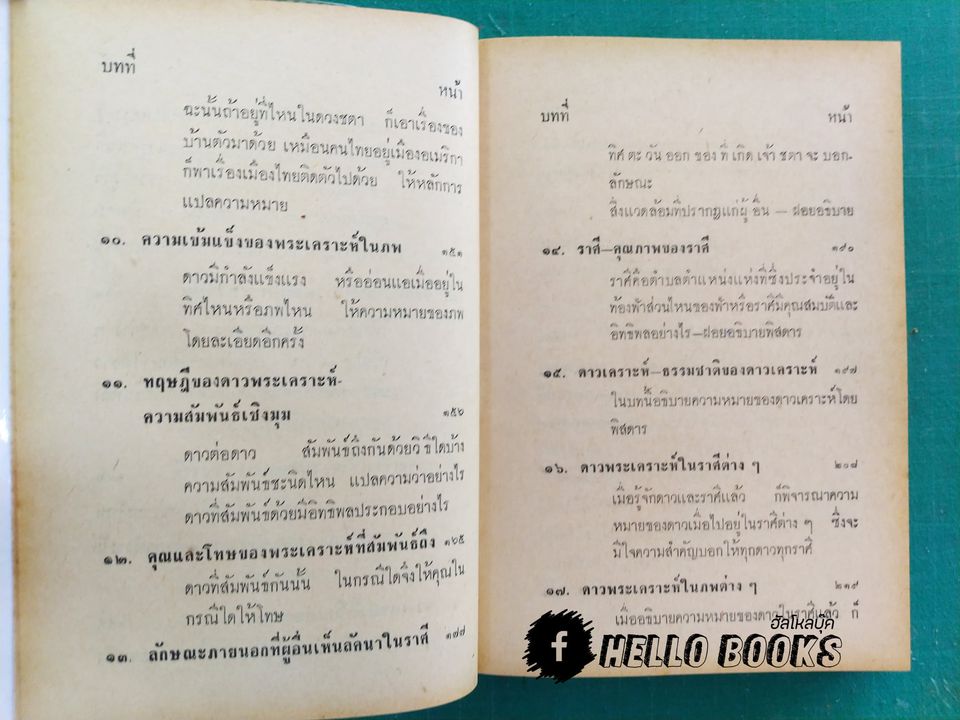 บทที่
หน้า
ฉะนั้นถ้าอยู่ที่ไหนในดวงชตา ก็เอาเรื่องของ
บ้านตัวมาด้วย เหมือนคนไทยอยู่เมืองอเมริกา
ก็พาเรื่องเมืองไทยติดตัวไปด้วย ให้หลักการ
แปลความหมาย
๑๐. ความเข้มแข็งของพระเคราะห์ในภพ ๑๕๑
ดาวมีกำลังแข็งแรง หรืออ่อนแอเมื่ออยู่ใน
ทิศไหนหรือภพไหน ให้ความหมายของภพ
โดยละเอียดอีกครั้ง
๑๑. ทฤษฎีของดาวพระเคราะห์-
ความสัมพันธ์เชิงมุม ๑๕๖
ดาวต่อดาว สัมพันธ์ถึงกันด้วยวิธีใดบ้าง
ความสัมพันธ์ชะนิดไหน แปลความว่าอย่างไร
ดาวที่สัมพันธ์ด้วยมีอิทธิพลประกอบอย่างไร
๑๒. คุณและโทษของพระเคราะห์ที่สัมพันธ์ถึง ๑๖๕
ดาวที่สัมพันธ์กันนั้น ในกรณีใดจึงให้คุณใน
กรณีใดให้โทษ
๑๓. ลักษณะภายนอกที่ผู้อื่นเห็นลัคนาในราศี ๑๗๗
บทที่
หน้า
ทิศ ตะ วัน ออก ของ ที่ เกิด เจ้า ชตา จะ บอก-
ลักษณะ
สิ่งแวดล้อมที่ปรากฏแก่ผู้ อื่น — ฝอยอธิบาย
๑๔. ราศี—คุณภาพของราศี ๑๙๐
ราศีคือตำบลตำแหน่งแห่งที่ซึ่งประจำอยู่ใน
ท้องฟ้าส่วนไหนของฟ้าหรือราศีมีคุณสมบัติและ
อิทธิพลอย่างไร—ฝอยอธิบายพิสดาร
๑๕. ดาวเคราะห์—ธรรมชาติของดาวเคราะห์ ๑๙๗
ในบทนี้อธิบายความหมายของดาวเคราะห์โดย
พิสดาร
๑๖. ดาวพระเคราะห์ในราศีต่าง ๆ ๒๐๘
เมื่อรู้จักดาวและราศีแล้ว ก็พิจารณาความ
หมายของดาวเมื่อไปอยู่ในราศีต่าง ๆ ซึ่งจะ
มีใจความสำคัญบอกให้ทุกดาวทุกราศี
๑๗. ดาวพระเคราะห์ในภพต่าง ๆ ๒๑๙
เมื่ออธิบายความหมายของดาวในราศีแล้ว ก็
ฮัลโหลบุ๊ค
f HELLO BOOKS